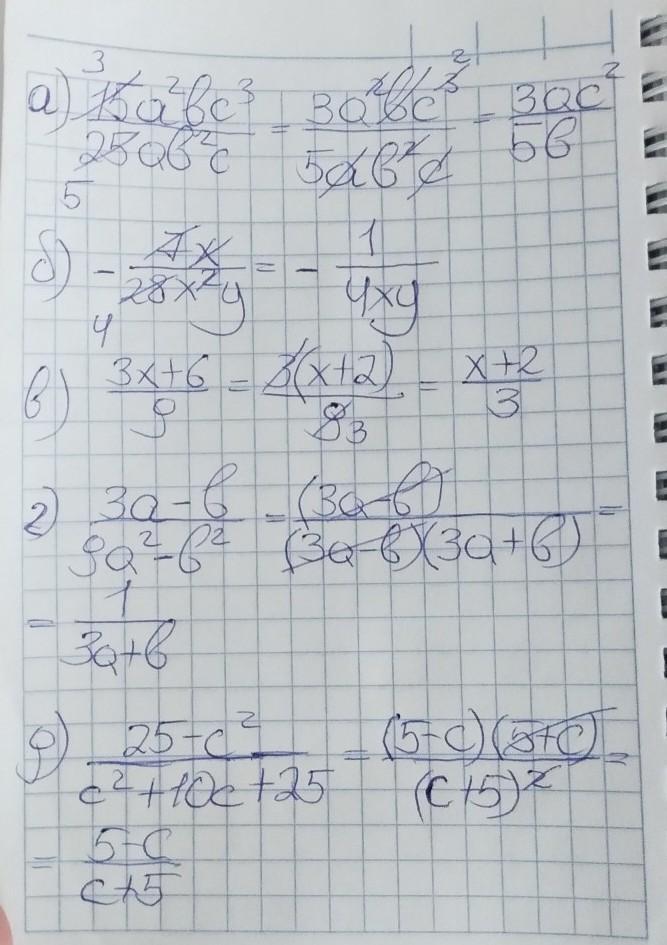 а) 15a²bc³/25ab²c = 3a²bc³/5ab²c = 3ac²/5b
3 5 2
б) - 7x/28x²y = - 1/4xy
4
в) 3x+6/9 = 3(x+2)/9 = x+2/3
1 3
г) 3a-b/9a²-b² = (3a-b)/(3a-b)(3a+b) =
= 1/3a+b
д) 25-c²/c²+10c+25 = (5-c)(5+c)/(c+5)² =
= 5-c/c+5